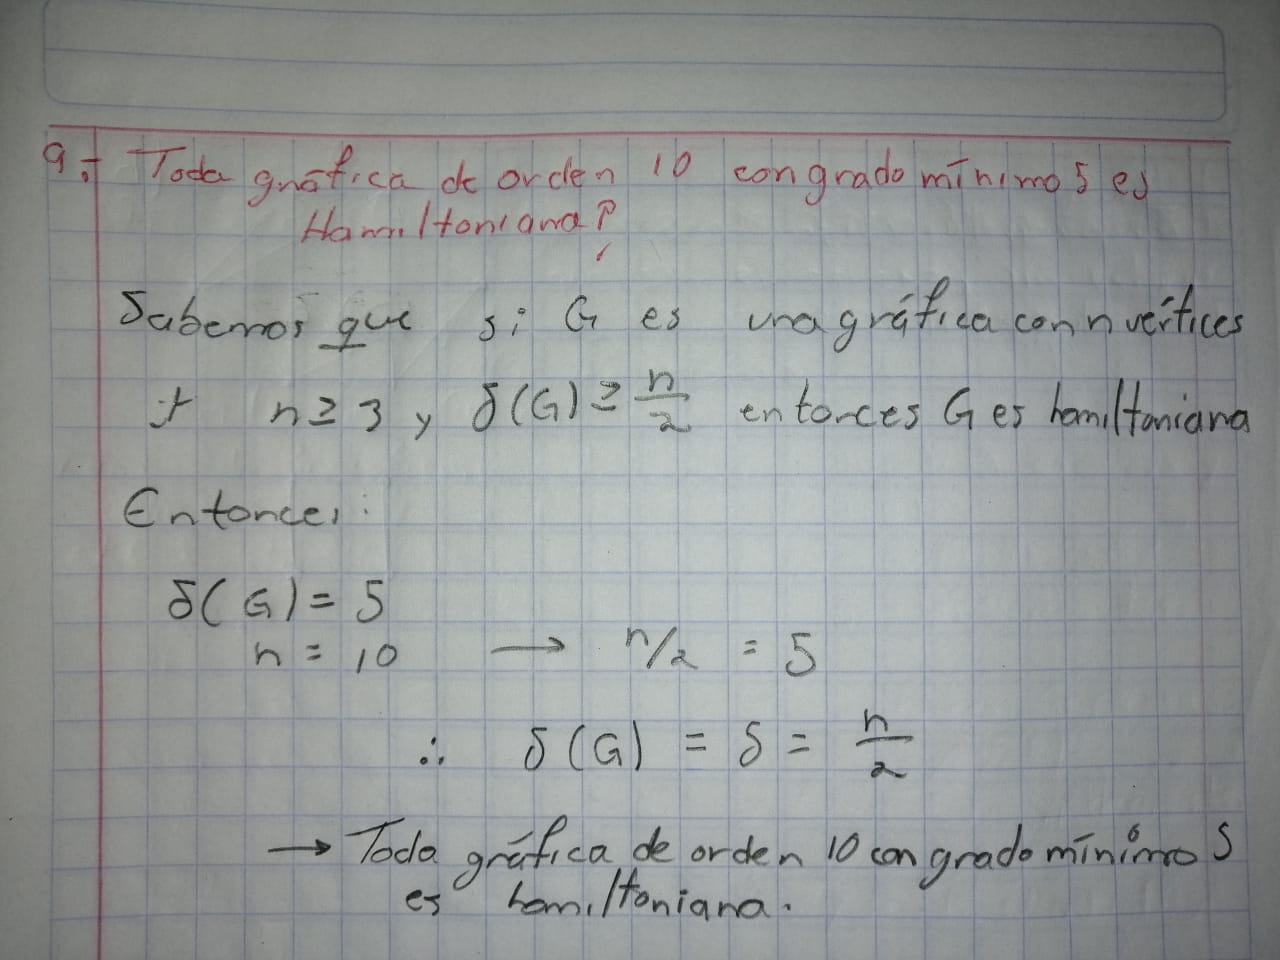 9.- Toda gráfica de orden 10 con grado mínimo 5 es
Hamiltoniana?
Sabemos que si G es una gráfica con n vértices
+ n ≥ 3 y δ(G) ≥ n/2 entonces G es hamiltoniana
Entonces:
δ(G) = 5
n = 10 → n/2 = 5
∴ δ(G) = 5 = n/2
→ Toda gráfica de orden 10 con grado mínimo 5
es hamiltoniana.